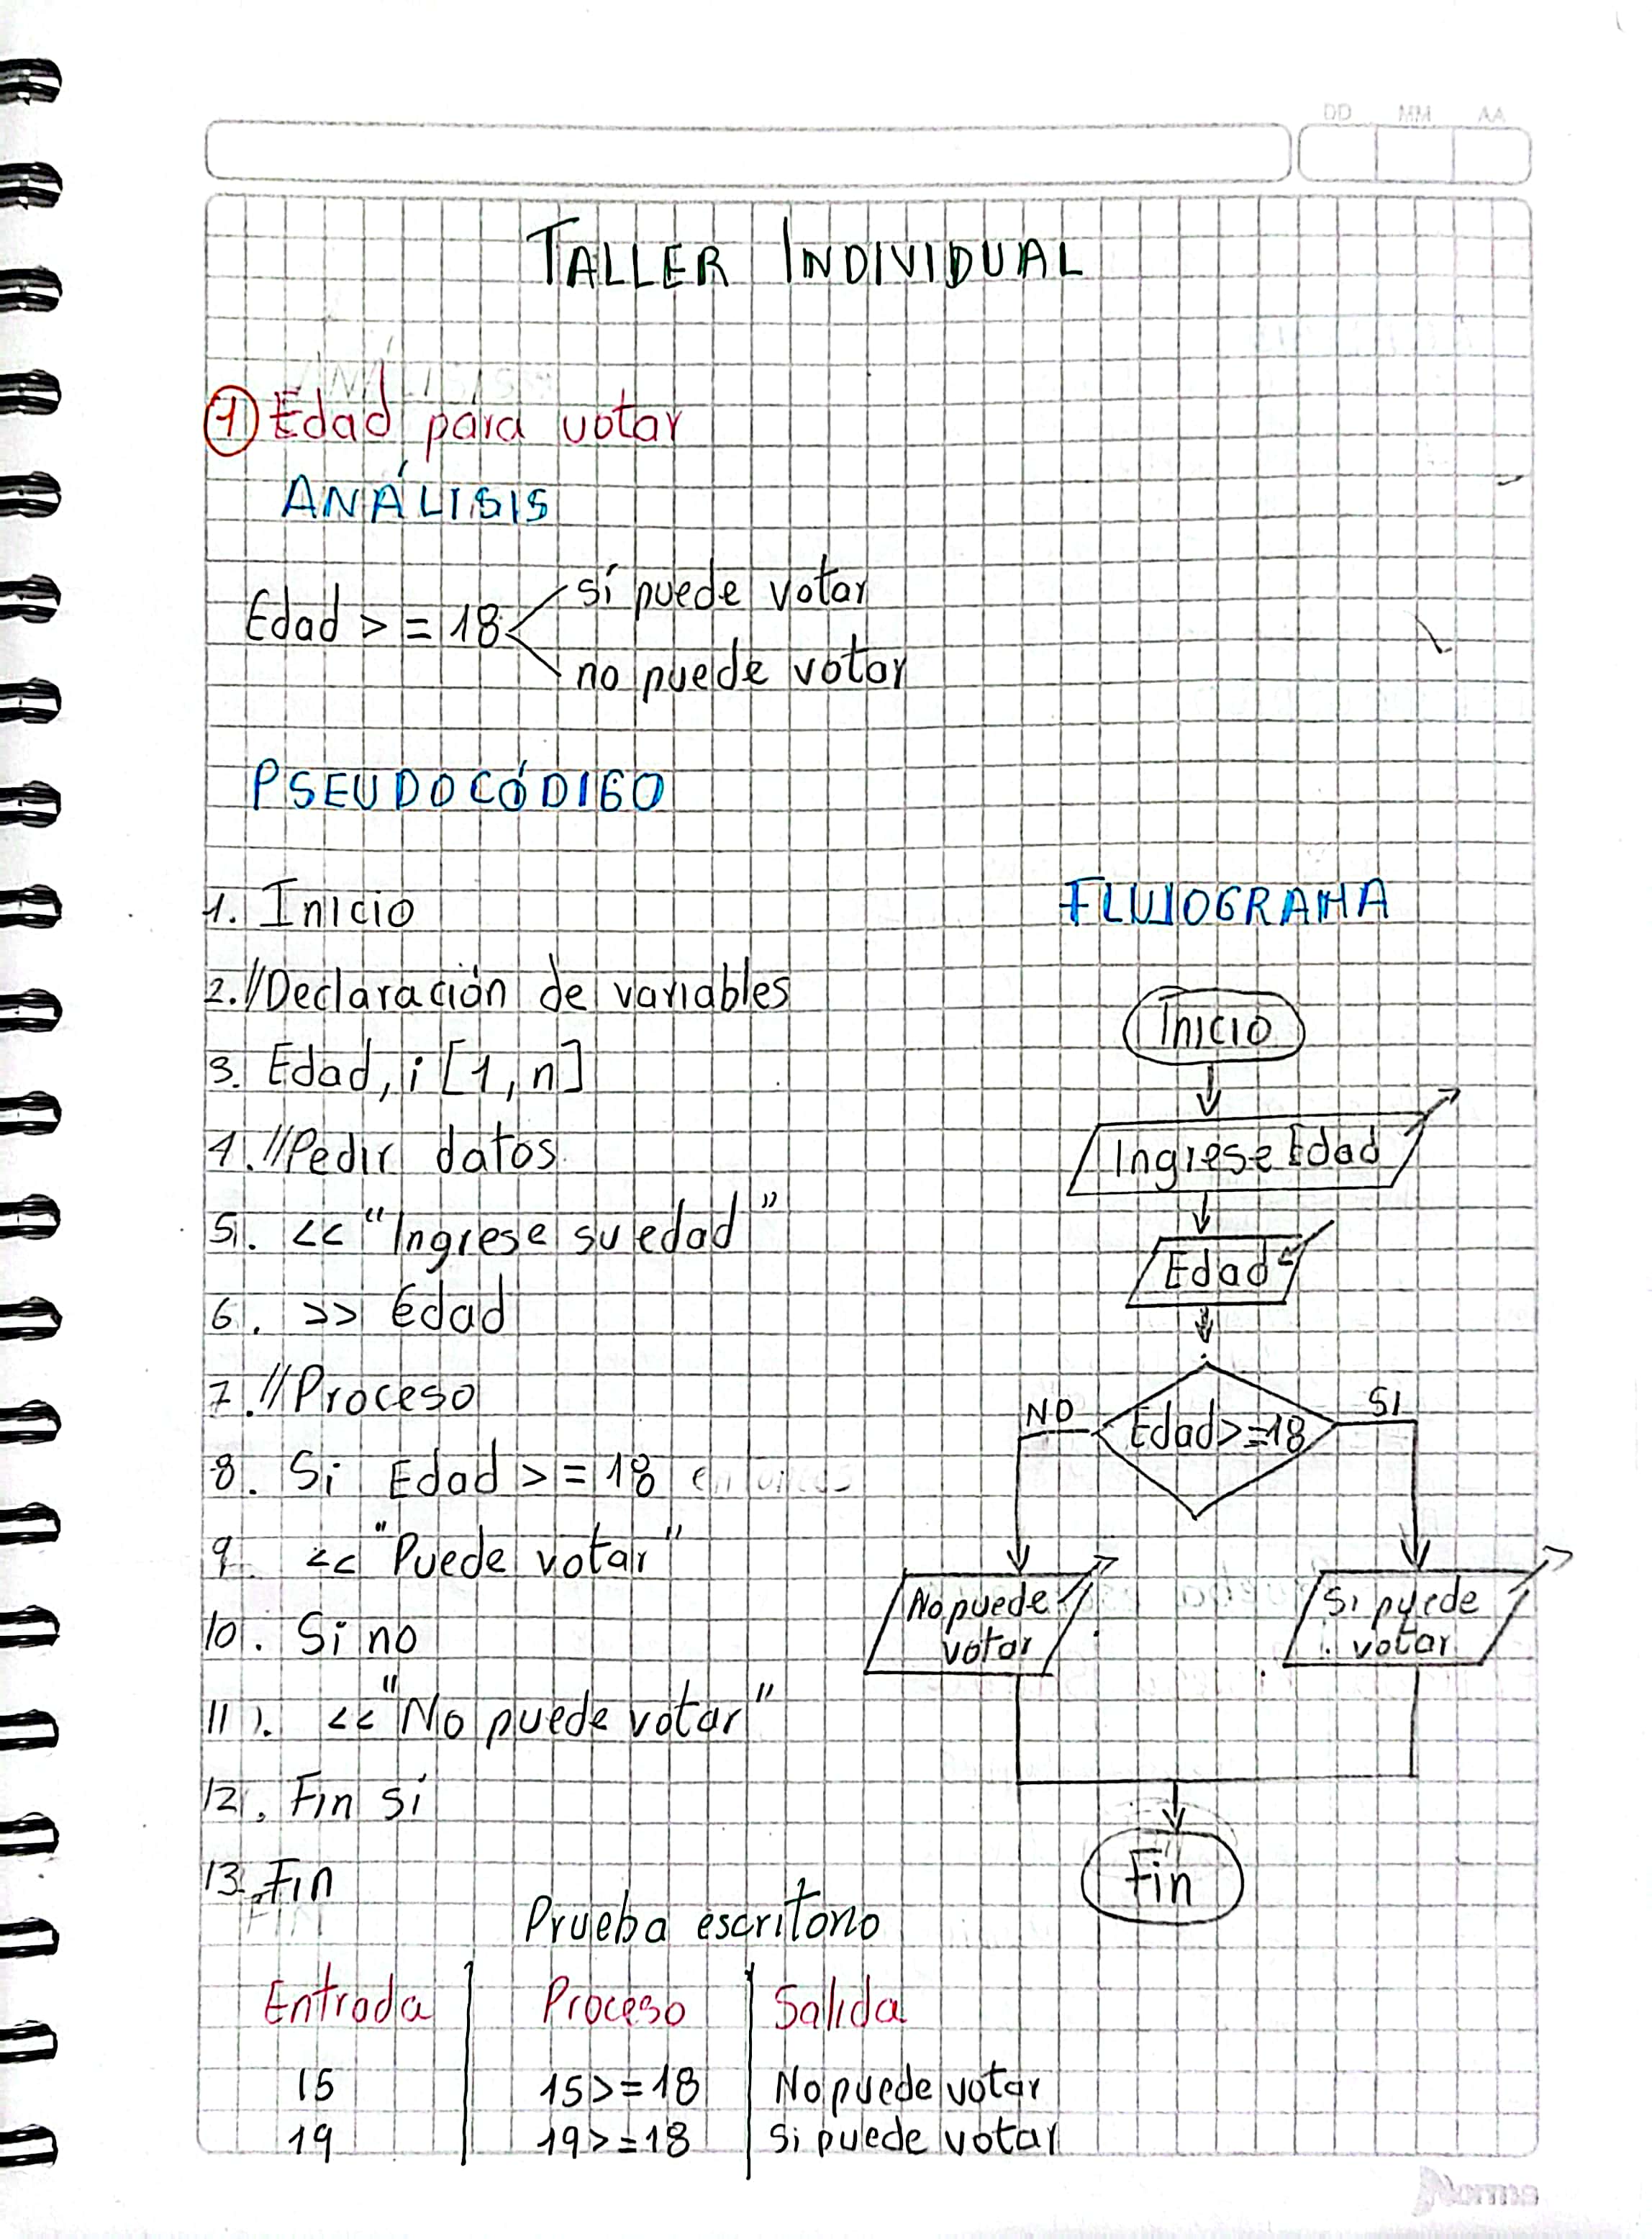 DD MM AA
TALLER INDIVIDUAL
1 Edad para votar
ANÁLISIS
Edad > = 18
sí puede votar
no puede votar
PSEUDOCÓDIGO
1. Inicio
2. //Declaración de variables
3. Edad, i [1, n]
4. //Pedir datos
5. << "Ingrese su edad"
6. >> Edad
7. //Proceso
8. Si Edad > = 18 entonces
9. << "Puede votar"
10. Si no
11. << "No puede votar"
12. Fin sí
13. Fin
FLUJOGRAMA
Inicio
Ingrese Edad
Edad
Edad>=18
NO
SI
No puede
votar
Si puede
votar
Fin
Prueba escritorio
Entrada Proceso Salida
15 15>=18 No puede votar
19 19>=18 Si puede votar
Norma